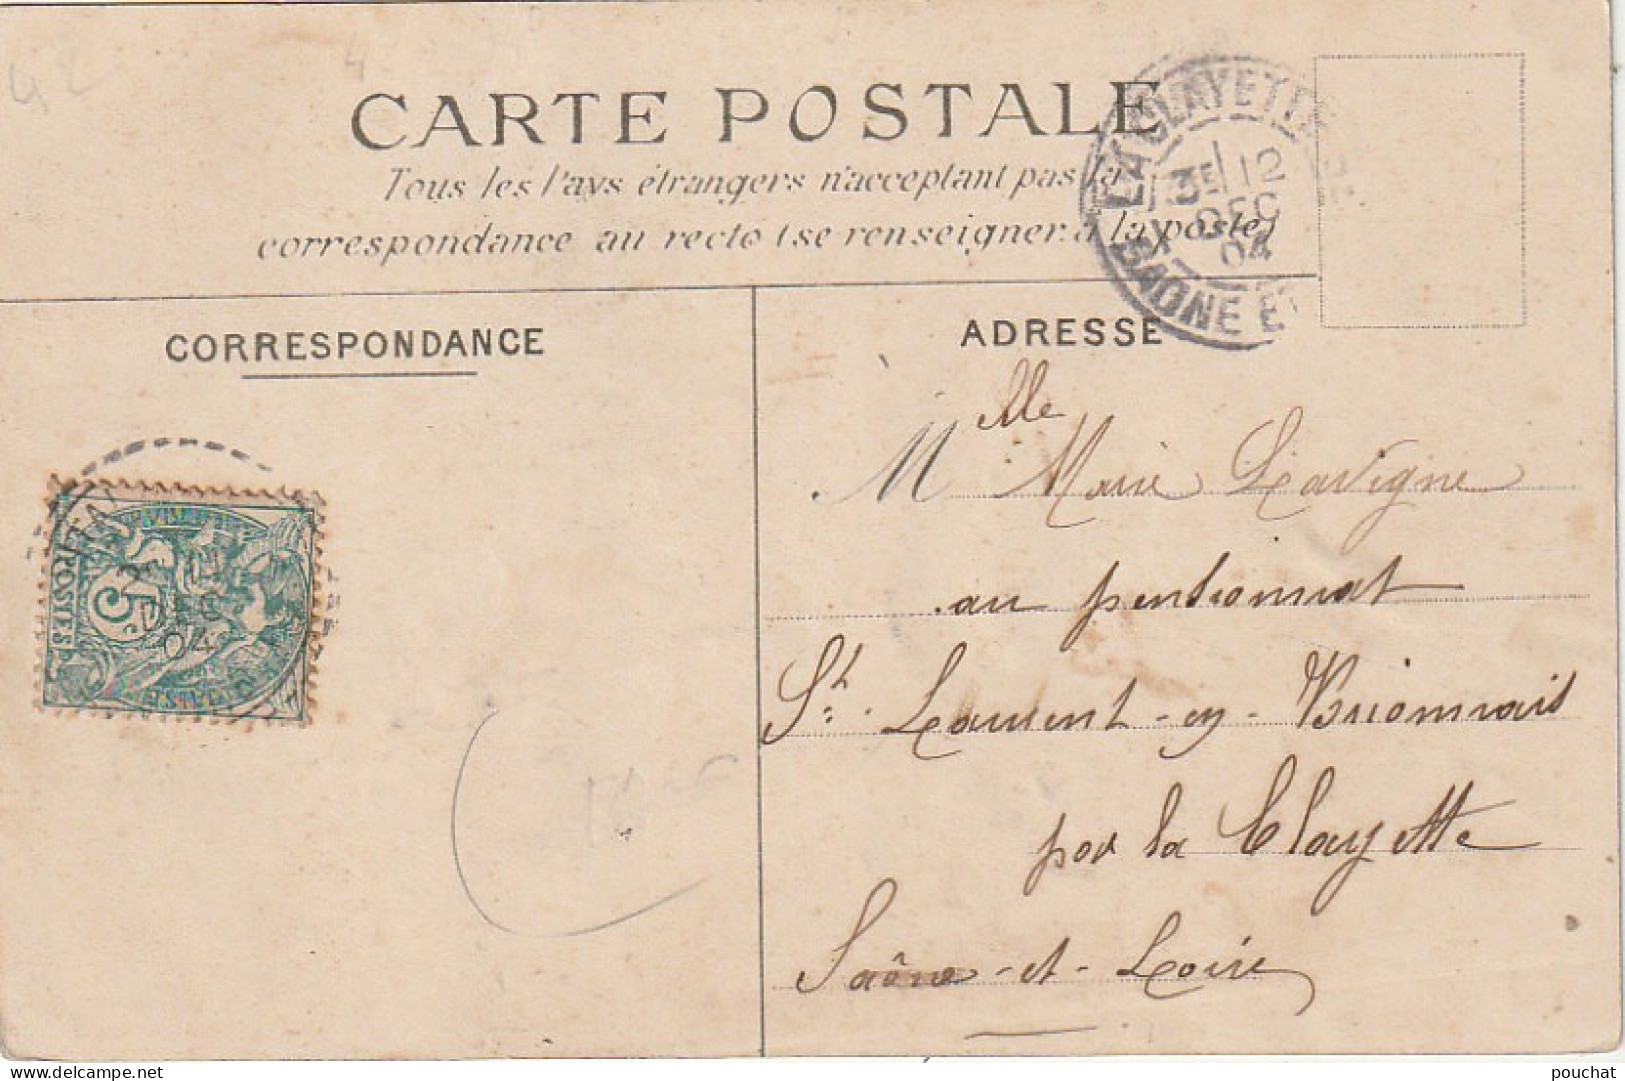 42
4
CARTE POSTALE
Tous les Pays étrangers n'acceptant pas la
correspondance au recto (se renseigner à la poste)
LA CLAYETTE
3E 12
DEC
04
SAONE E
CORRESPONDANCE
ADRESSE
Mlle Marie Lavigne
au pensionnat
St. Laurent-en-Brionnais
par la Clayette
Saône-et-Loire
POSTES
5c
04
pouchat